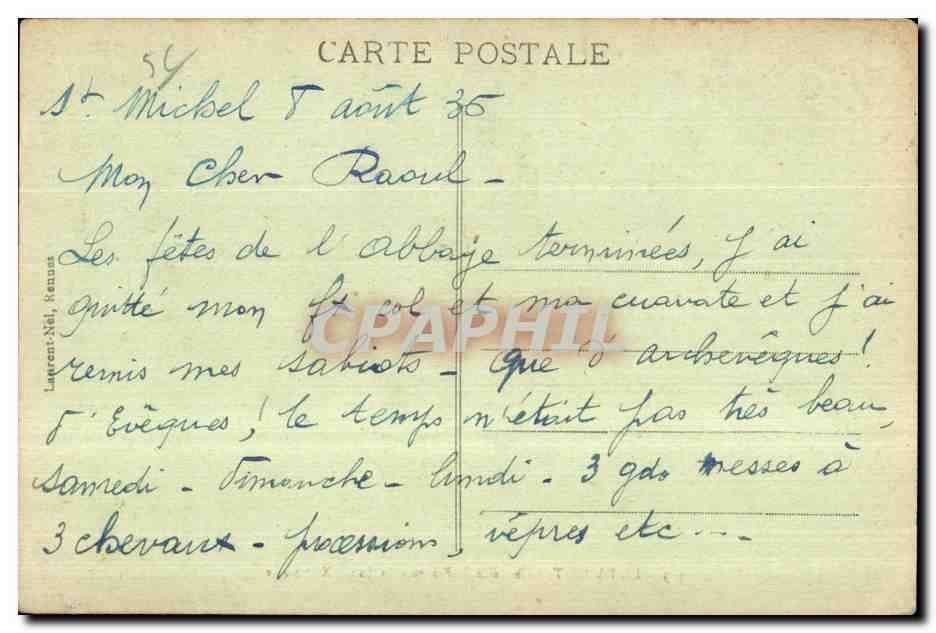 CARTE POSTALE
54
St. Michel 8 août 35
Mon Cher Raoul -
Les fêtes de l'abbaye terminées, j'ai
quitté mon fx col et ma cravate et j'ai
remis mes sabots - que d'archevêques!
d'Evêques! le temps n'était pas très beau,
samedi - Dimanche - lundi - 3 gdes messes à
3 chevaux - processions, vêpres etc ...
Laurent-Nel, Rennes
CPAPHIL